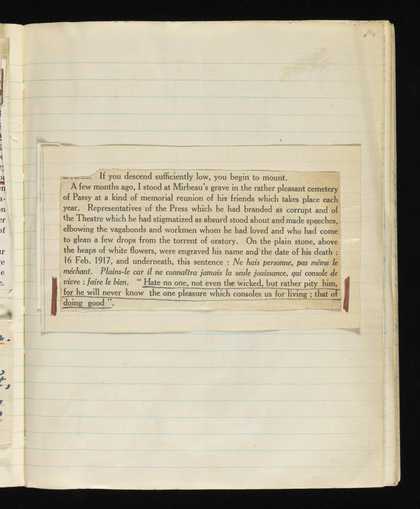 If you descend sufficiently low, you begin to mount.
A few months ago, I stood at Mirbeau's grave in the rather pleasant cemetery
of Passy at a kind of memorial reunion of his friends which takes place each
year. Representatives of the Press which he had branded as corrupt and of
the Theatre which he had stigmatized as absurd stood about and made speeches,
elbowing the vagabonds and workmen whom he had loved and who had come
to glean a few drops from the torrent of oratory. On the plain stone, above
the heaps of white flowers, were engraved his name and the date of his death :
16 Feb. 1917, and underneath, this sentence : Ne hais personne, pas même le
méchant. Plains-le car il ne connaîtra jamais la seule jouissance, qui console de
vivre : faire le bien. " Hate no one, not even the wicked, but rather pity him,
for he will never know the one pleasure which consoles us for living ; that of
doing good ".